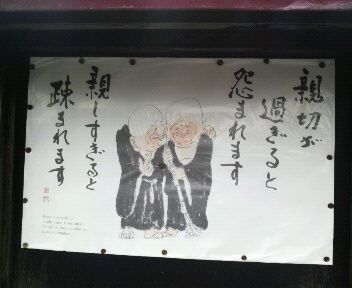 親切が
過ぎると
怨まれます
親しすぎると
疎まれます